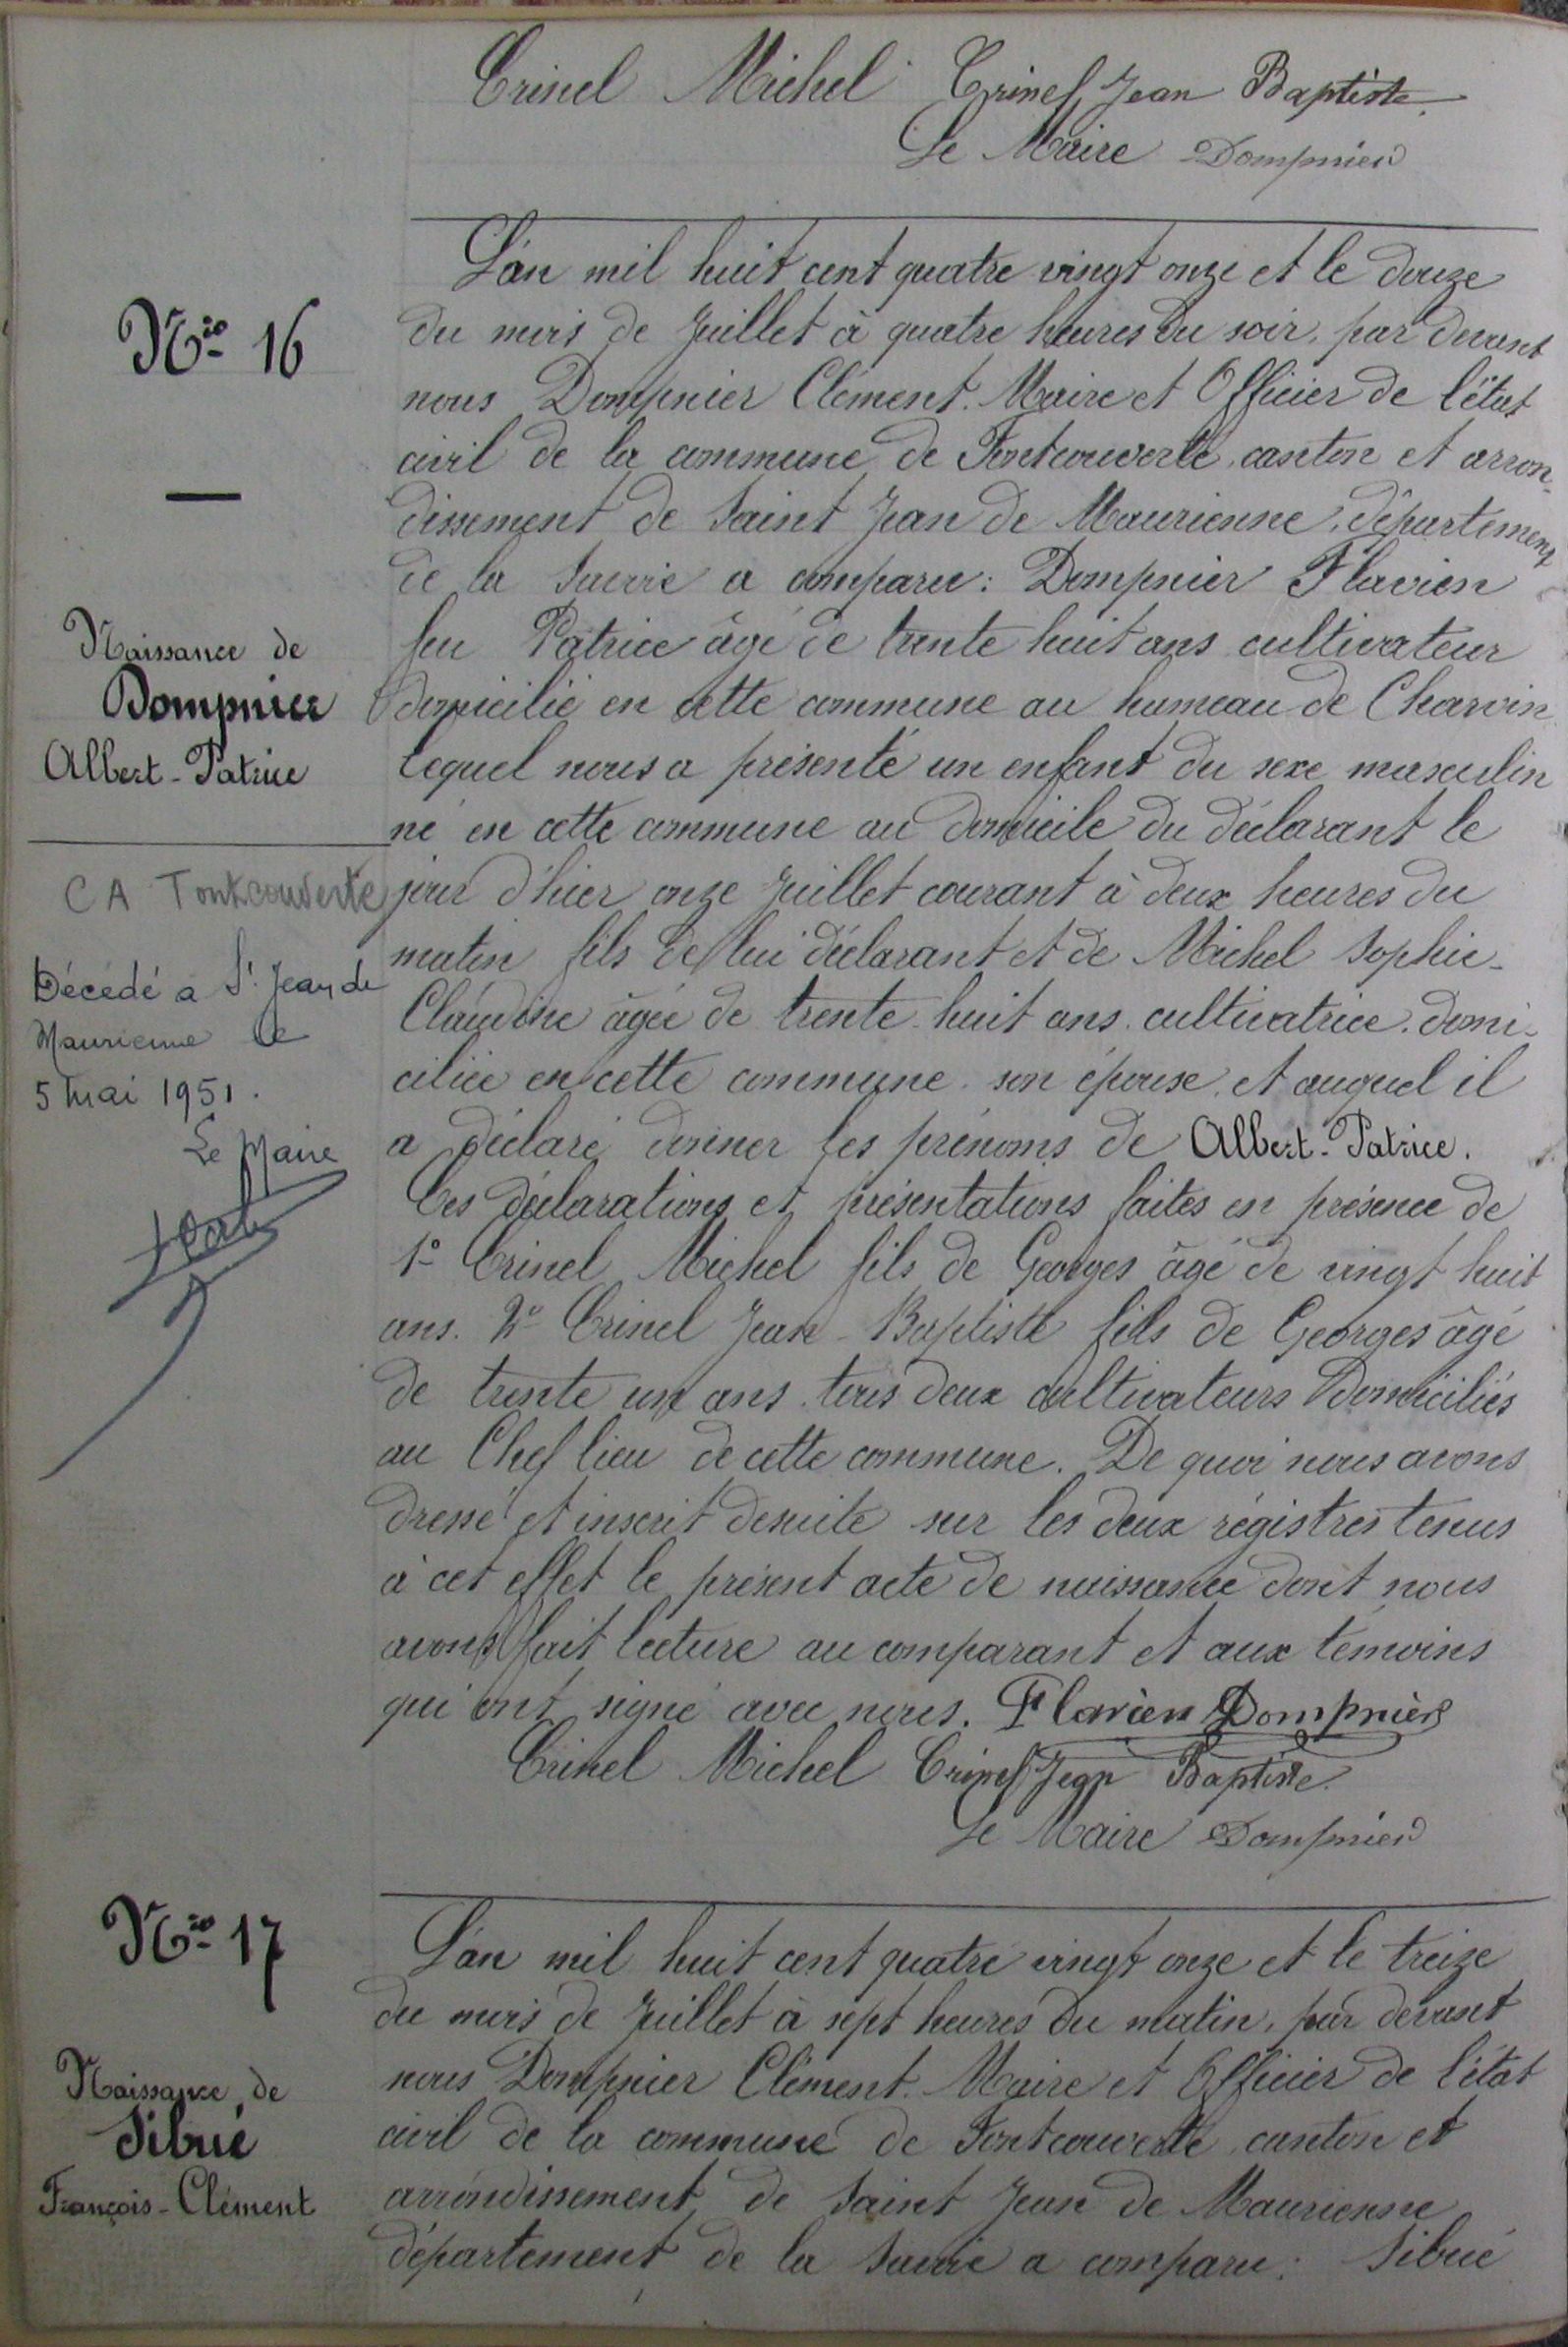 Crinel Michel Crinel Jean Baptiste
Le Maire Dompnier
Nro 16
Naissance de
Dompnier
Albert-Patrice
CA Fontcouverte
Décédé à St Jean de
Maurienne le
5 mai 1951.
Le Maire
L'an mil huit cent quatre vingt onze et le douze
du mois de Juillet à quatre heures du soir, par devant
nous Dompnier Clément. Maire et Officier de l'état
civil de la commune de Fontcouverte, canton et arron-
dissement de Saint Jean de Maurienne, département
de la Savoie a comparu: Dompnier Flavien
feu Patrice âgé de trente huit ans cultivateur
domicilié en cette commune au hameau de Charvin
lequel nous a présenté un enfant du sexe masculin
né en cette commune au domicile du déclarant le
jour d'hier onze Juillet courant à deux heures du
matin fils de lui déclarant et de Michel Sophie-
Claudine âgée de trente-huit ans. cultivatrice. domi-
ciliée en cette commune. son épouse. et auquel il
a déclaré donner les prénoms de Albert-Patrice.
Ces déclarations et présentations faites en présence de
1º Crinel Michel fils de Georges âgé de vingt huit
ans. 2º Crinel Jean-Baptiste fils de Georges âgé
de trente un ans. tous deux cultivateurs domiciliés
au Chef lieu de cette commune. De quoi nous avons
dressé et inscrit desuite sur les deux régistres tenus
à cet effet le présent acte de naissance dont nous
avons fait lecture au comparant et aux témoins
qui ont signé avec nous. Flavien Dompnier
Crinel Michel Crinel Jean Baptiste
Le Maire Dompnier
Nro 17
Naissance de
Sibué
François-Clément
L'an mil huit cent quatre vingt onze et le treize
du mois de Juillet à sept heures du matin, par devant
nous Dompnier Clément. Maire et Officier de l'état
civil de la commune de Fontcouverte, canton et
arrondissement de Saint Jean de Maurienne
département de la Savoie a comparu: Sibué